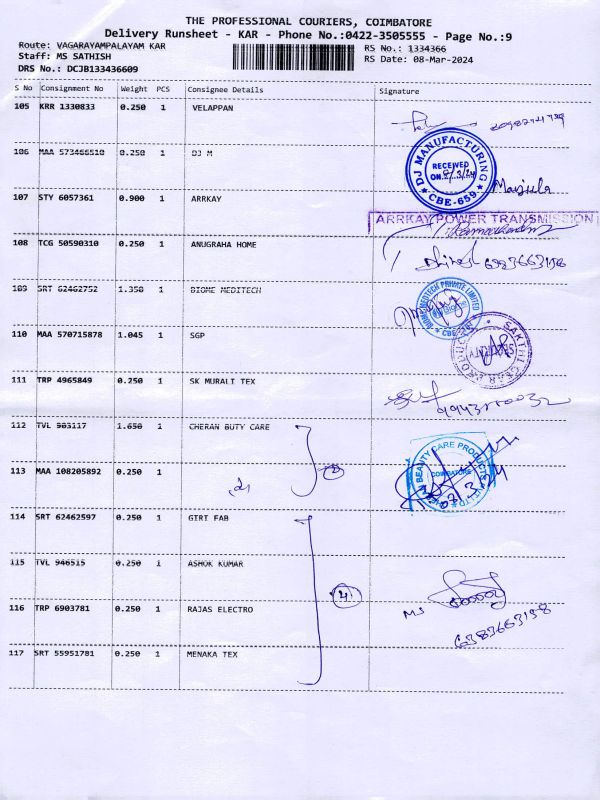 THE PROFESSIONAL COURIERS, COIMBATORE
Delivery Runsheet - KAR - Phone No.:0422-3505555 - Page No.:9
Route: VAGARAYAMPALAYAM KAR
RS No.: 1334366
Staff: MS SATHISH
RS Date: 08-Mar-2024
DRS No.: DCJB133436609
S No Consignment No Weight PCS Consignee Details Signature
105 KRR 1330833 0.250 1 VELAPPAN
106 MAA 573466510 0.250 1 DJ M
DJ MANUFACTURING
RECEIVED
ON
CBE-659
Manjula
107 STY 6057361 0.900 1 ARRKAY
ARRKAY POWER TRANSMISSION
108 TCG 50590310 0.250 1 ANUGRAHA HOME
6383663198
109 SRT 62462752 1.350 1 BIOME MEDITECH
110 MAA 570715878 1.045 1 SGP
SECURITY
111 TRP 4965849 0.250 1 SK MURALI TEX
112 TVL 903117 1.650 1 CHERAN BUTY CARE
BEAUTY CARE PRODUCTS
COIMBATORE
113 MAA 108205892 0.250 1
2
114 SRT 62462597 0.250 1 GIRI FAB
115 TVL 946515 0.250 1 ASHOK KUMAR
4
116 TRP 6903781 0.250 1 RAJAS ELECTRO
MS
6383663198
117 SRT 55951781 0.250 1 MENAKA TEX